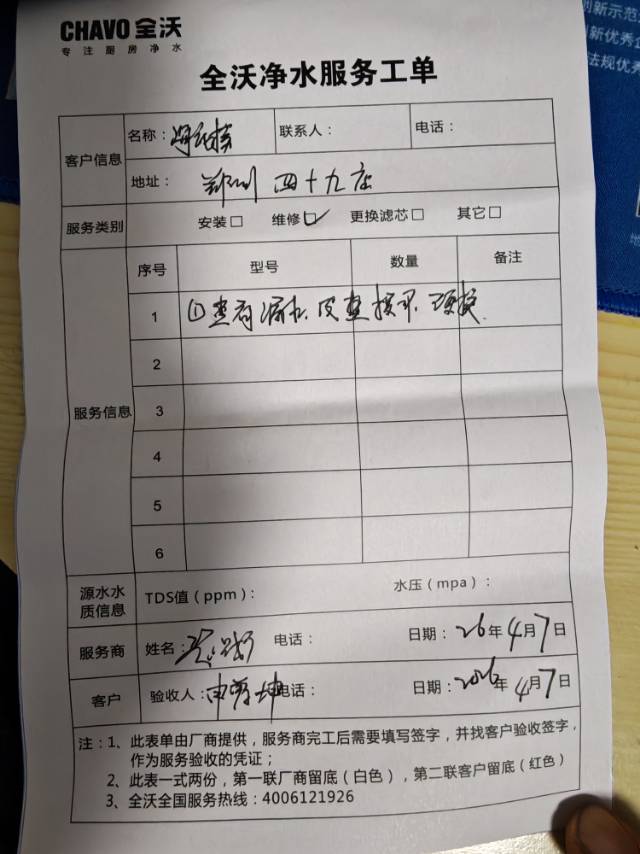 CHAVO 全沃
专注厨房净水
创新示范
创新优秀企
法规优秀
全沃净水服务工单
客户信息 名称： 联系人： 电话：
地址： 郑州 四十九店
服务类别 安装□ 维修☑ 更换滤芯□ 其它□
服务信息 序号 型号 数量 备注
1 ①查看漏水、
2
3
4
5
6
源水水质信息 TDS值（ppm）： 水压（mpa）：
服务商 姓名： 电话： 日期：26年4月7日
客户 验收人： 电话： 日期：2026年4月7日
注：1、此表单由厂商提供，服务商完工后需要填写签字，并找客户验收签字，
作为服务验收的凭证；
2、此表一式两份，第一联厂商留底（白色），第二联客户留底（红色）
3、全沃全国服务热线：4006121926